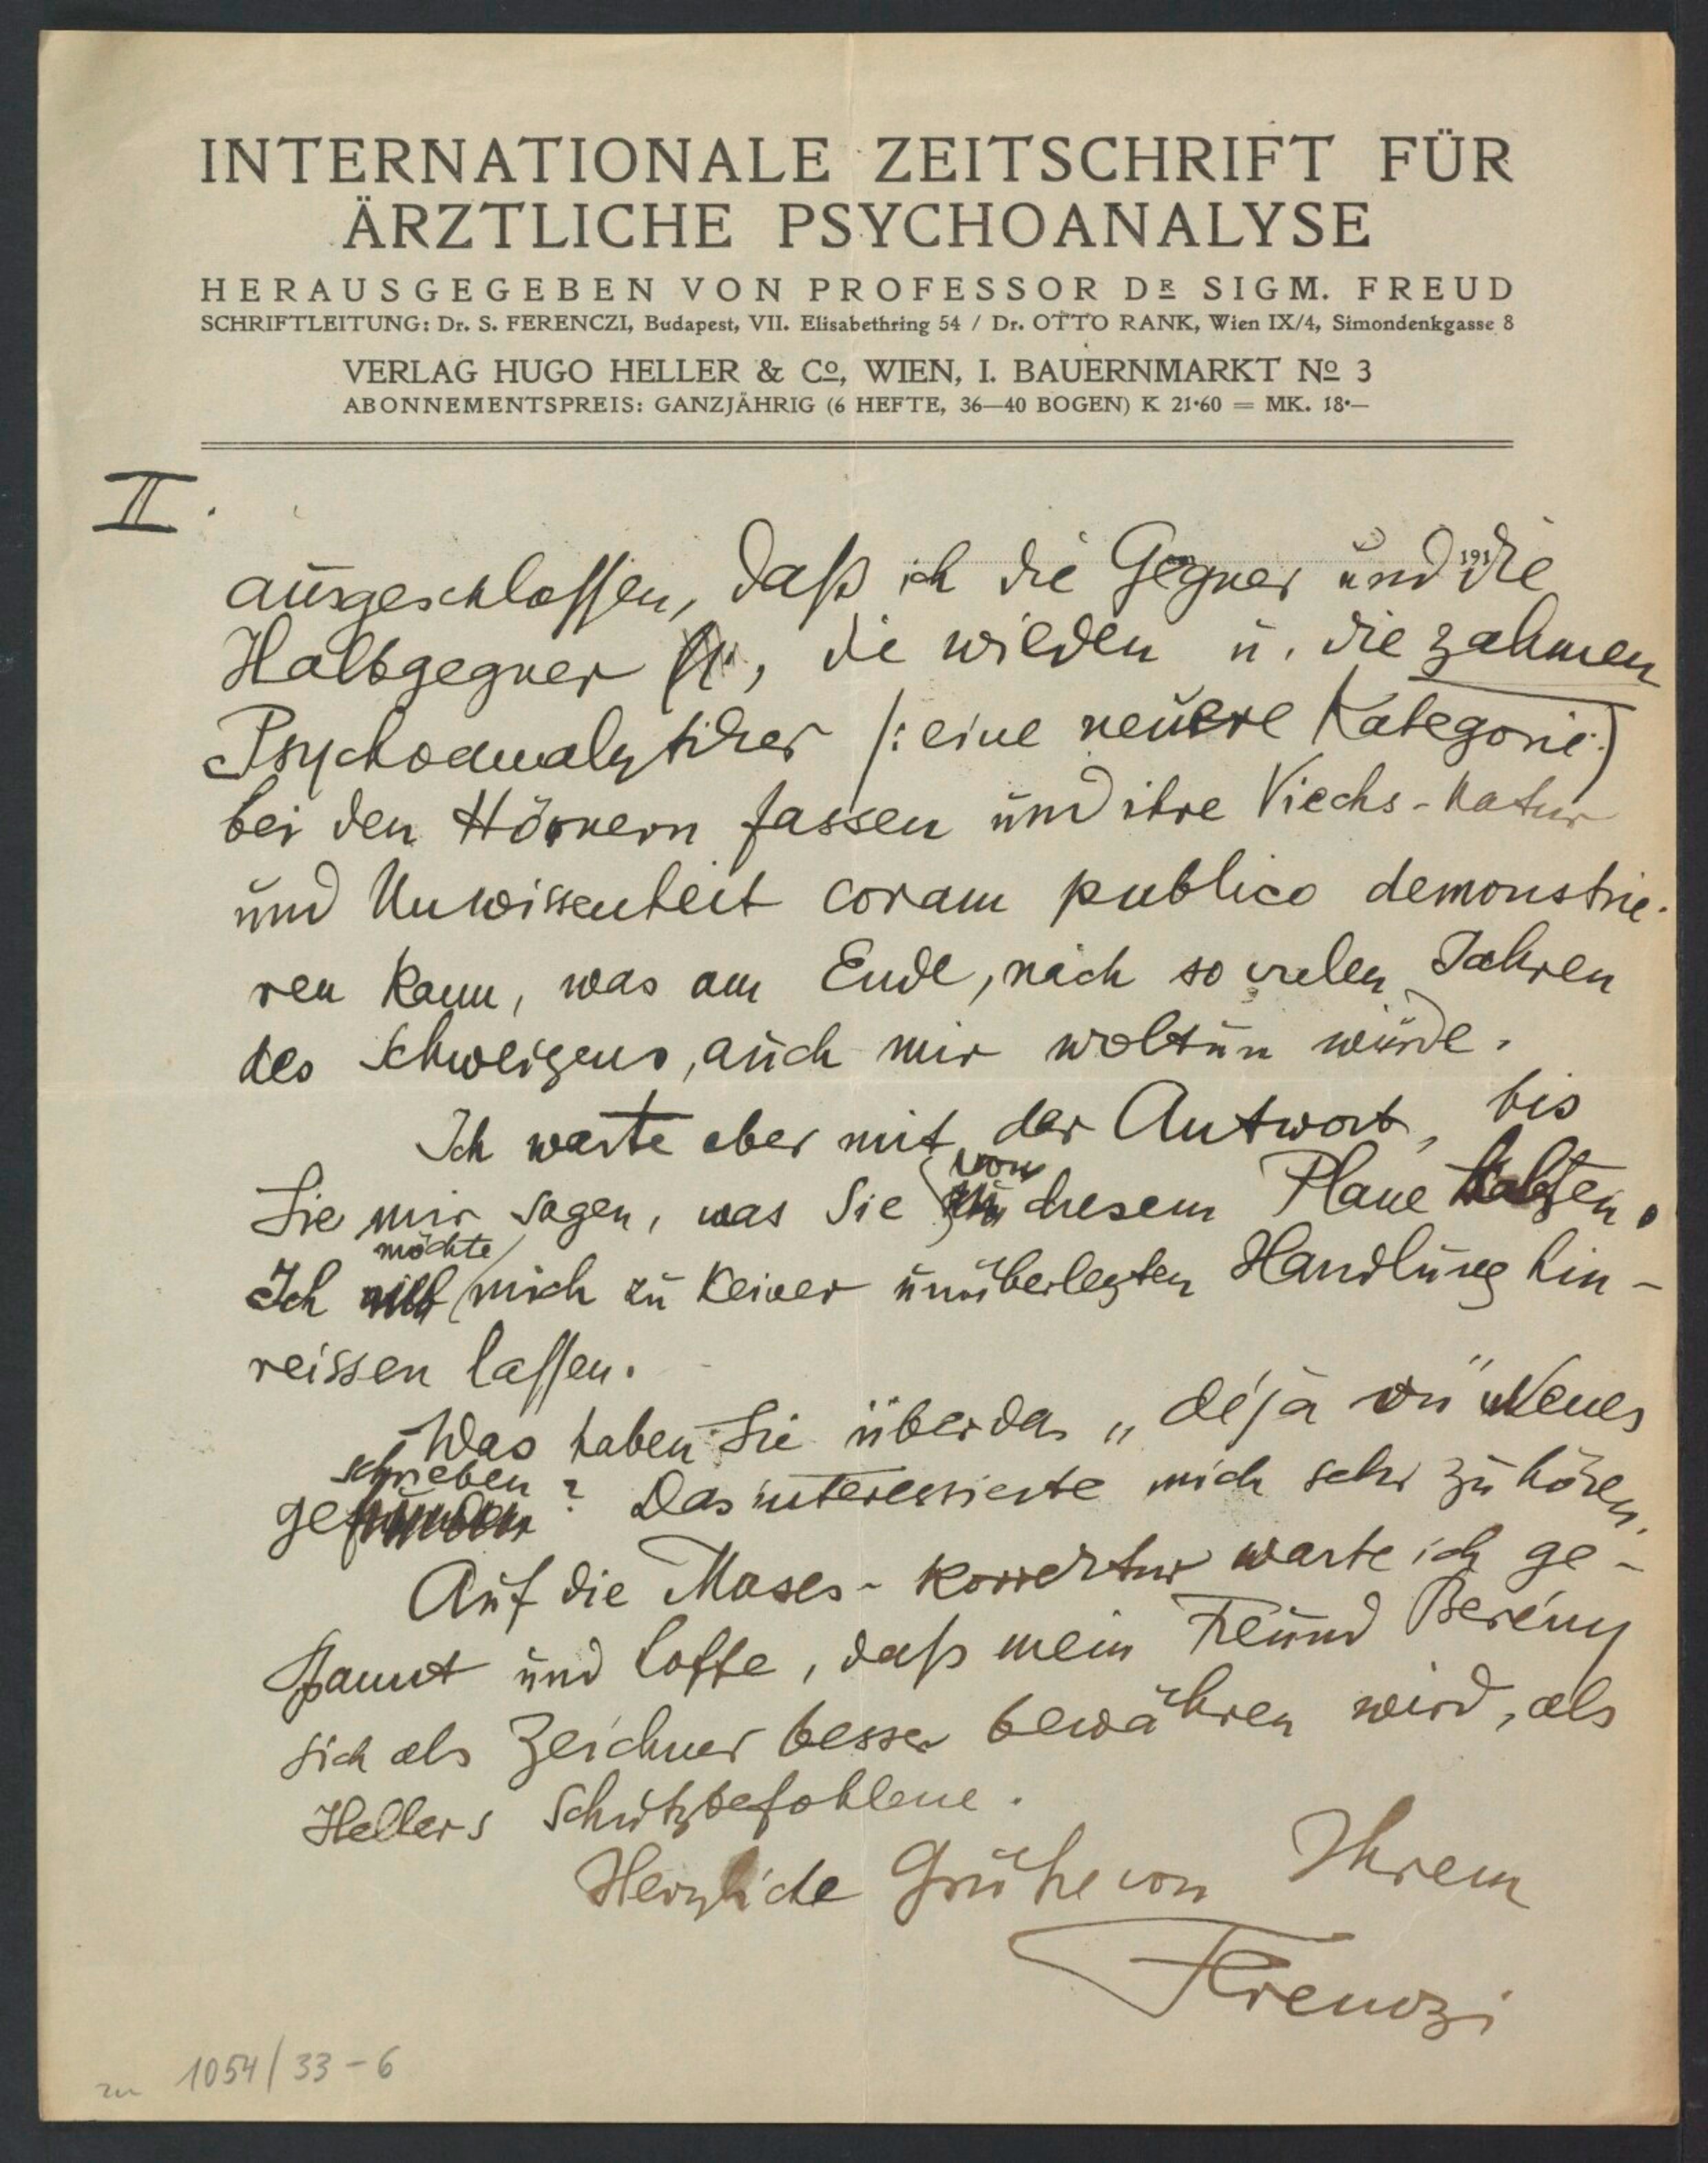 INTERNATIONALE ZEITSCHRIFT FÜR
ÄRZTLICHE PSYCHOANALYSE
HERAUSGEGEBEN VON PROFESSOR DR SIGM. FREUD
SCHRIFTLEITUNG: Dr. S. FERENCZI, Budapest, VII. Elisabethring 54 / Dr. OTTO RANK, Wien IX/4, Simondenkgasse 8
VERLAG HUGO HELLER & Co, WIEN, I. BAUERNMARKT No 3
ABONNEMENTSPREIS: GANZJÄHRIG (6 HEFTE, 36—40 BOGEN) K 21·60 = MK. 18·—
II.
191
ausgeschlossen, daß ich die Gegner und die
Halbgegner, die wilden u. die zahmen
Psychoanalytiker (: eine neuere Kategorie :)
bei den Hörnern fassen und ihre Viechs-Natur
und Unwissenheit coram publico demonstrie-
ren kann, was am Ende, nach so vielen Jahren
des Schweigens, auch mir woltun würde.
Ich warte aber mit der Antwort, bis
Sie mir sagen, was Sie von diesem Plane halten.
Ich möchte mich zu keiner unüberlegten Handlung hin-
reissen lassen.
Was haben Sie über das „déjà vu" Neues
geschrieben? Das interessierte mich sehr zu hören.
Auf die Moses-Korrektur warte ich ge-
spannt und hoffe, daß mein Freund Berény
sich als Zeichner besser bewähren wird, als
Hellers Schutzbefohlene.
Herzliche Grüße von Ihrem
Ferenczi
zu 1054/33-6